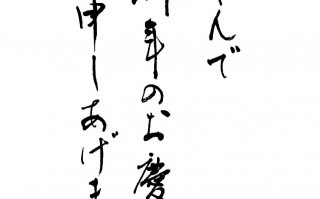 んで
年のお慶
申しあげま